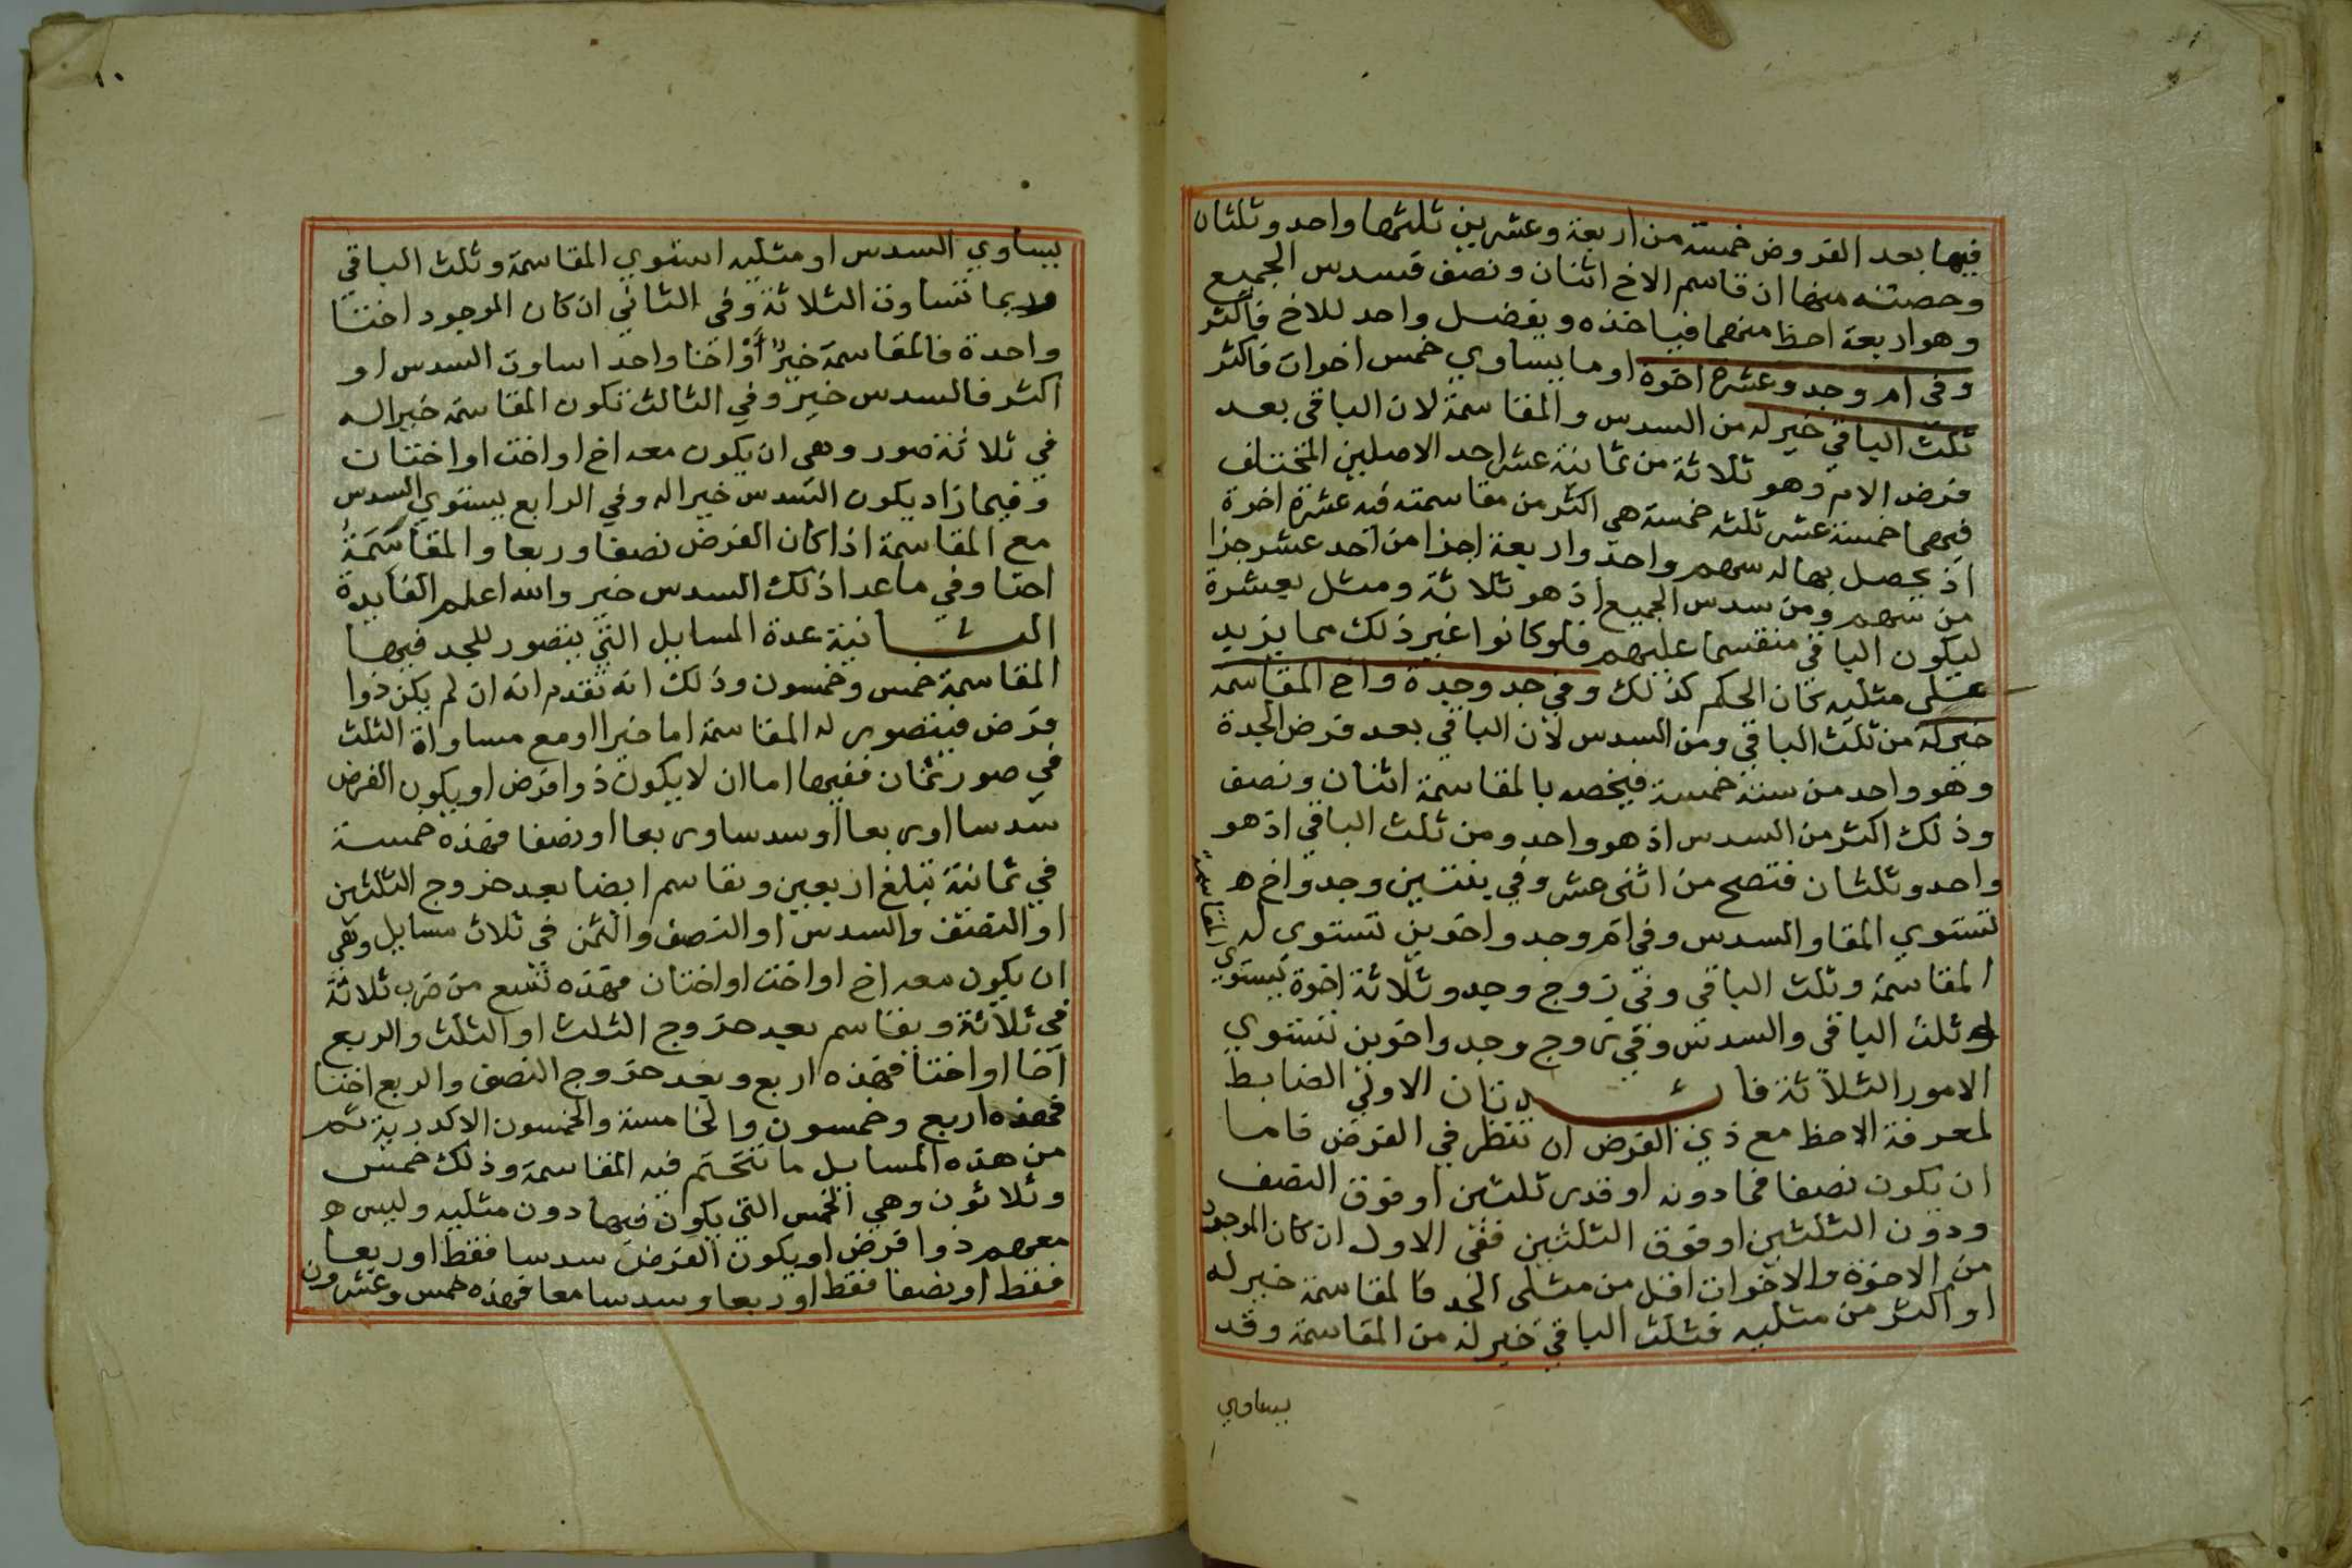 فيها بعد الفروض خمسة من اربعة وعشرين ثلثها واحد وثلثان
وحصته منها ان قاسم الاخ اثنان ونصف فسدس الجميع
وهو اربعة احظ منهما فياخذه ويفضل واحد للاخ فاكثر
وفي ام وجد وعشرة اخوة او ما يساوي خمس اخوات فاكثر
ثلث الباقي خير له من السدس والمقاسمة لان الباقي بعد
فرض الام وهو ثلاثة من ثمانية عشر احد الاصلين المختلف
فيهما خمسة عشر ثلثه خمسة هي اكثر من مقاسمته فيه عشرة اخوة
اذ يحصل بها له سهم واحد واربعة اجزا من احد عشر جزا
من سهم ومن سدس الجميع اذ هو ثلاثة ومثل بعشرة
ليكون الباقي منقسما عليهم فلو كانوا غير ذلك مما يزيد
على مثليه كان الحكم كذلك وفي جد وجدة واخ المقاسمة
خير له من ثلث الباقي ومن السدس لان الباقي بعد فرض الجدة
وهو واحد من ستة خمسة فيخصه بالمقاسمة اثنان ونصف
وذلك اكثر من السدس اذ هو واحد ومن ثلث الباقي اذ هو
واحد وثلثان فتصح من اثنى عشر وفي بنتين وجد واخ ه
تستوي المقا والسدس وفي ام وجد واخوين تستوي له
المقاسمة
المقاسمة وثلث الباقي وفي زوج وجد وثلاثة اخوة يستوي
له ثلث الباقي والسدس وفي زوج وجد واخوين تستوي
الامور الثلاثة فائدتان الاولى الضابط
لمعرفة الاحظ مع ذي الفرض ان تنظر في الفرض فاما
ان يكون نصفا فما دونه او قدر ثلثين او فوق النصف
ودون الثلثين او فوق الثلثين ففي الاول ان كان الموجود
من الاخوة والاخوات اقل من مثلي الجد فالمقاسمة خير له
او اكثر من مثليه فثلث الباقي خير له من المقاسمة وقد
يساوي
١٠
يساوي السدس او مثليه استوي المقاسمة وثلث الباقي
وربما تساوت الثلاثة وفي الثاني ان كان الموجود اختا
واحدة فالمقاسمة خيرٌ أو اخا واحدا ساوت السدس او
اكثر فالسدس خير وفي الثالث تكون المقاسمة خيرا له
في ثلاثة صور وهي ان يكون معه اخ او اخت او اختان
وفيما زاد يكون السدس خيرا له وفي الرابع يستوي السدس
مع المقاسمة اذا كان الفرض نصفا وربعا والمقاسَمَةُ
اختا وفي ما عدا ذلك السدس خير والله اعلم الفايدة
الثانية عدة المسايل التي يتصور للجد فيها
المقاسمة خمس وخمسون وذلك انه تقدم انه ان لم يكن ذوا
فرض فيتصور له المقاسمة اما خيرا او مع مساواة الثلث
في صور ثمان ففيها اما ان لا يكون ذوا فرض او يكون الفرض
سدسا او ربعا او سدسا وربعا او نصفا فهذه خمسة
في ثمانية تبلغ اربعين ويقاسم ايضا بعد خروج الثلثين
او النصف والسدس او النصف والثمن في ثلاث مسايل وهي
ان يكون معه اخ او اخت او اختان فهذه تسع من ضرب ثلاثة
في ثلاثة ويقاسم بعد خروج الثلث او الثلث والربع
اخا او اختا فهذه اربع وبعد خروج النصف والربع اختا
فهذه اربع وخمسون والخامسة والخمسون الاكدرية ثم
من هذه المسايل ما تتحتم فيه المقاسمة وذلك خمس
وثلاثون وهي الخمس التي يكون فيها دون مثليه وليس ه
معهم ذوا فرض او يكون الفرض سدسا فقط او ربعا
فقط او نصفا فقط او ربعا وسدسا معا فهذه خمس وعشرون